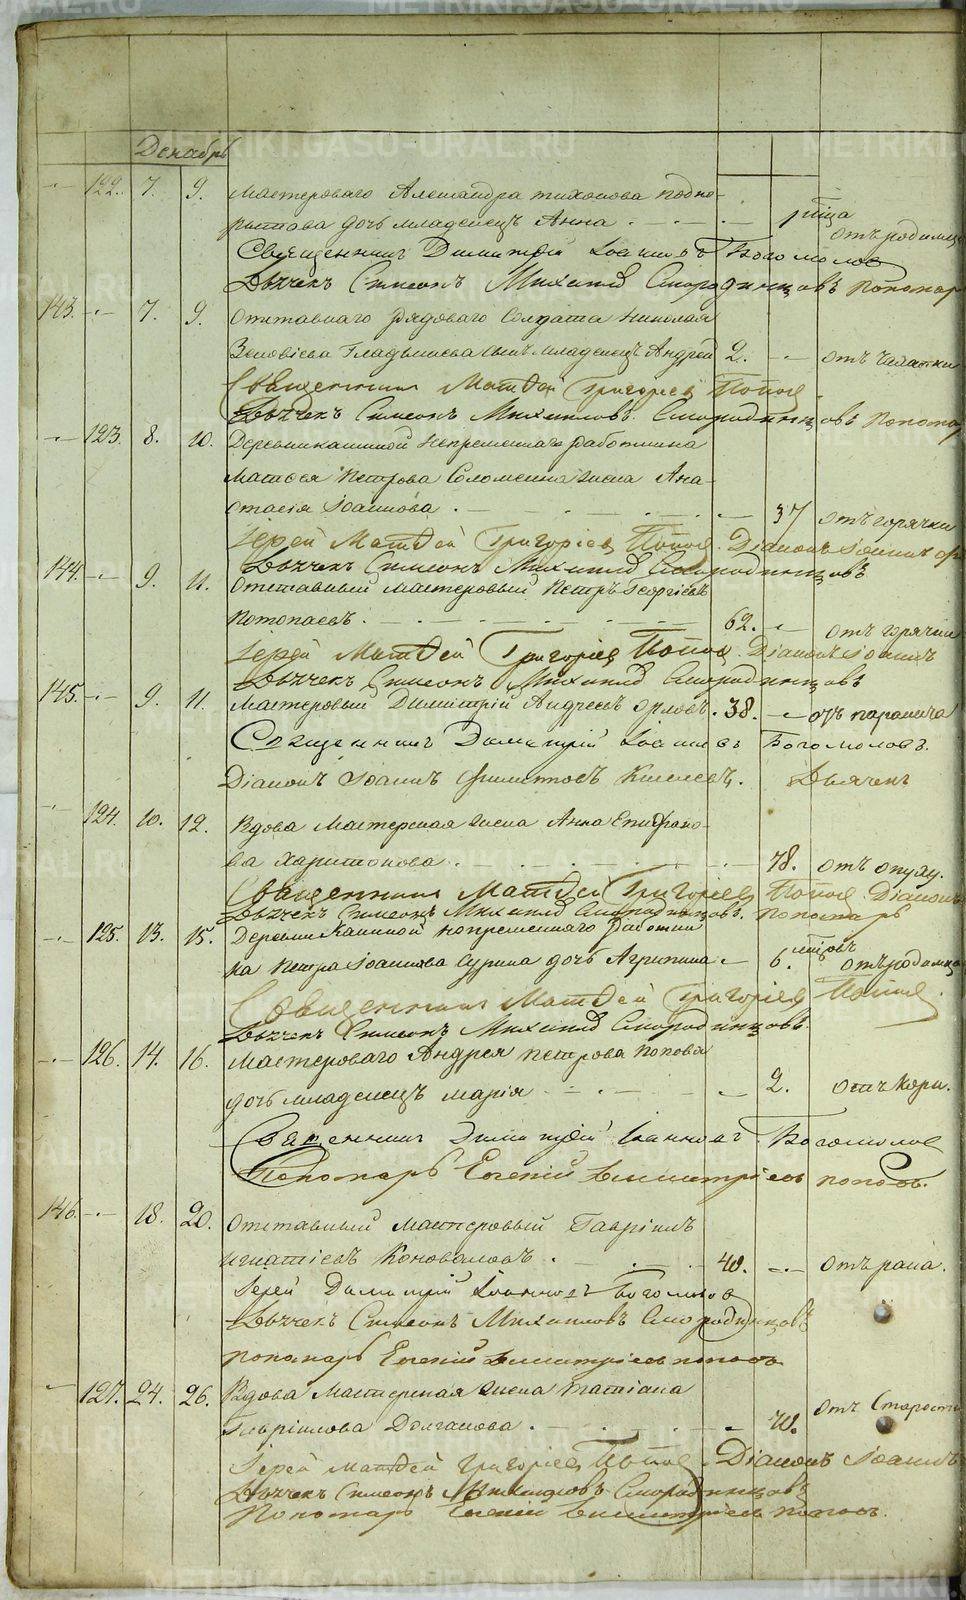 Декабрь
122. 7. 9. Мастероваго Александра Тихонова Подко-
рытова дочь младенецъ Анна 1 мца отъ родимца
Священникъ Димитрій Іоанновъ Богомоловъ
Дьячекъ Симеонъ Михаиловъ Смородинцовъ Пономарь
143. 7. 9. Отставнаго рядоваго солдата Николая
Зеновіева Гладышева сынъ младенецъ Андрей 2. отъ чахотки
Священникъ Матѳей Григорьевъ Поповъ
Дьячекъ Симеонъ Михаиловъ Смородинцовъ Пономарь
123. 8. 10. Деревни Каминой непременнаго работника
Матвея Петрова Соломеина жена Ана-
стасія Іоаннова 37 отъ горячки
Іерей Матѳей Григорьевъ Поповъ Діаконъ Іоаннъ
Дьячекъ Симеонъ Михаиловъ Смородинцовъ
144. 9. 11. Отставный мастеровый Петръ Георгіевъ
Потопаевъ 62. отъ горячки
Іерей Матѳей Григорьевъ Поповъ Діаконъ Іоаннъ
Дьячекъ Симеонъ Михаиловъ Смородинцовъ
145. 9. 11. Мастеровый Димитрій Андреевъ Орловъ 38. отъ паралича
Священникъ Димитрій Іоанновъ Богомоловъ.
Діаконъ Іоаннъ Филитовъ Киселевъ. Дьячекъ
124. 10. 12. Вдова мастерская жена Анна Епифано-
ва Харитонова 78. отъ опух.
Священникъ Матѳей Григорьевъ Поповъ Діаконъ
Дьячекъ Симеонъ Михаиловъ Смородинцовъ. Пономарь
125. 13. 15. Деревни Каминой непременнаго работни-
ка Петра Іоаннова Сурина дочь Агрипина 6. мцовъ отъ родимца
Священникъ Матѳей Григорьевъ Поповъ.
Дьячекъ Симеонъ Михаиловъ Смородинцовъ
126. 14. 16. Мастероваго Андрея Петрова Попова
дочь младенецъ Марія 2. отъ кори.
Священникъ Димитрій Іоанновъ Богомоловъ
Пономарь Евгеній Димитріевъ Поповъ.
146. 18. 20. Отставный мастеровый Гавріилъ
Игнатіевъ Коноваловъ 40. отъ рака.
Іерей Димитрій Іоанновъ Богомоловъ
Дьячекъ Симеонъ Михаиловъ Смородинцовъ
Пономарь Евгеній Димитріевъ Поповъ
127. 24. 26. Вдова мастерская жена Татіана
Гавріилова Долганова 70. отъ старости
Іерей Матѳей Григорьевъ Поповъ Діаконъ Іоаннъ
Дьячекъ Симеонъ Михаиловъ Смородинцовъ
Пономарь Евгеній Димитріевъ Поповъ.
METRIKI.GASO-URAL.RU